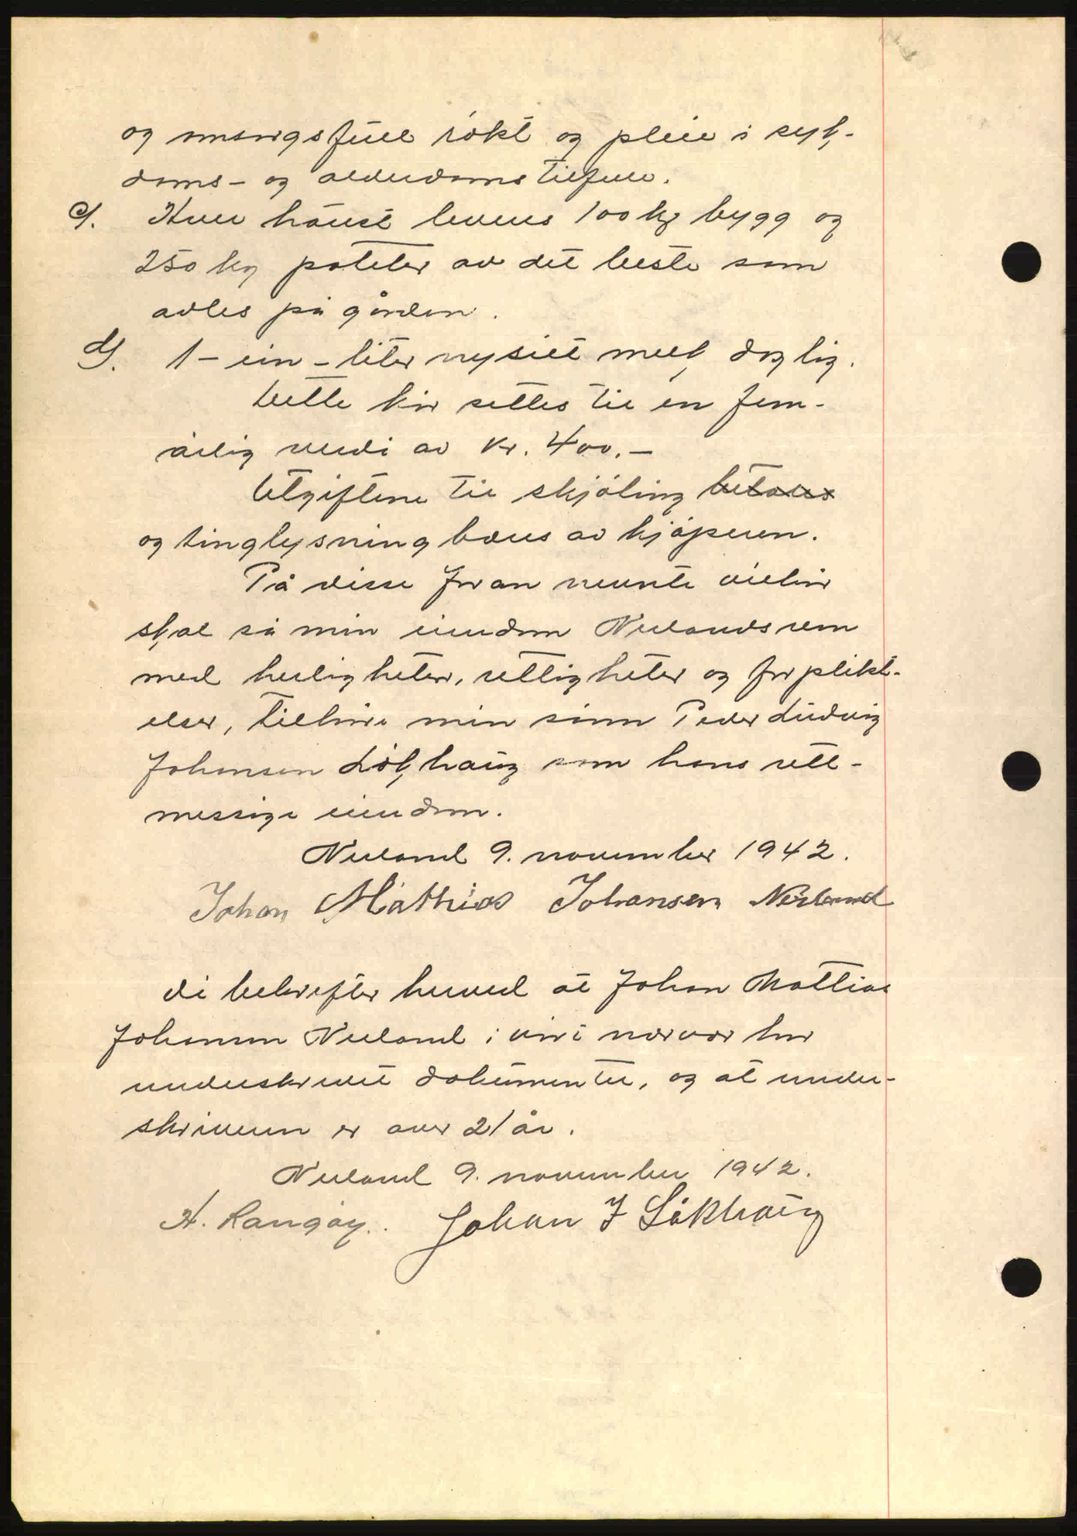 og omsorgsfull røkt og pleie i syk-
doms- og alderdomstilfelle.
c). Hver høust leveres 100 kg bygg og
250 kg poteter av det beste som
avles på gården.
d). 1 - ein - liter nysilt melk daglig.
Dette kår settes til en fem-
årlig verdi av kr. 400.-
Utgiftene til skjøting betales
og tinglysning bæres av kjøperen.
På disse foran nevnte vilkår
skal så min eiendom Nerlandsrem
med herligheter, rettigheter og forplikt-
elser, tilhøre min sønn Peder Ludvig
Johansen Løkhaug som hans rett-
messige eiendom.
Nerland 9. november 1942.
Johan Mathias Johansen Nerland
Vi bekrefter herved at Johan Mattias
Johansen Nerland i vårt nærvær har
underskrevet dokumentet, og at under-
skriveren er over 21 år.
Nerland 9. november 1942.
H. Rangøy. Johan J Løkhaug